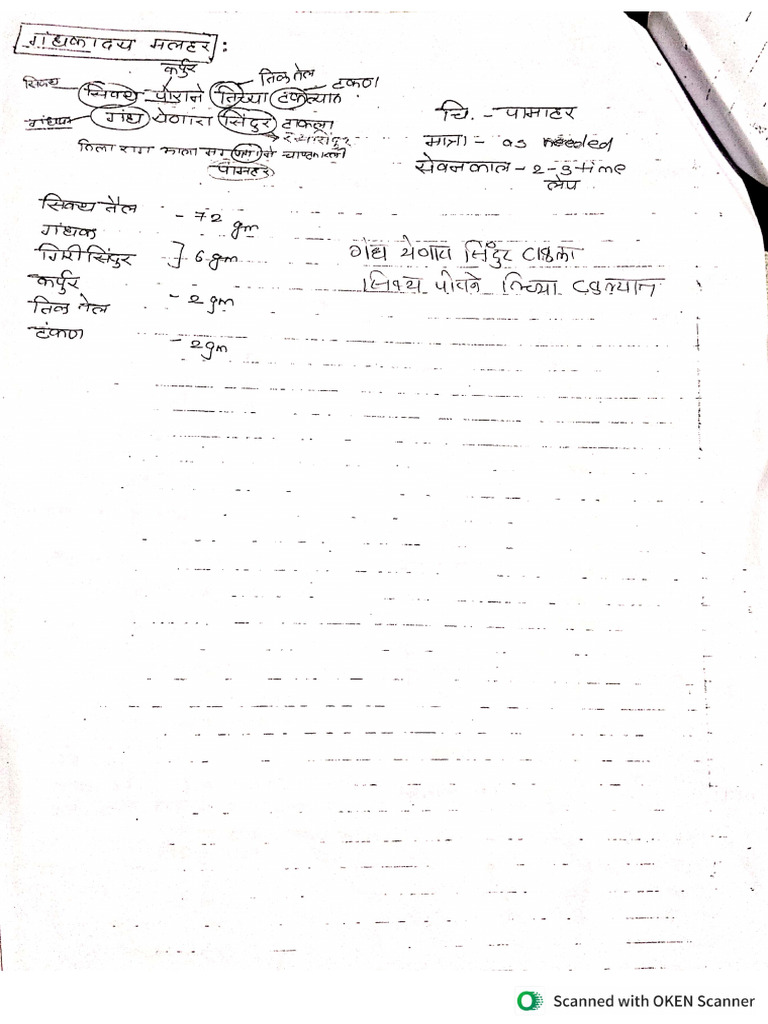 गंधकादय मलहर :
कर्पुर
तिळ तेल
टंकण
सिक्थ
सिक्थ पोराने तिच्या टकल्यात
गंधक
गंध येणारा सिंदुर टाकला
तिला राग आला मग
पामहर
चि. - पामाहर
मात्रा - as needed
सेवन काल - 2-3 time
लेप
सिक्थ तैल - 72 gm
गंधक
गिरी सिंदुर ] 6 gm
कर्पुर - 2 gm
तिळ तेल
टंकण - 2gm
गंध येणारा सिंदुर टाकला
सिक्थ पोराने तिच्या टकल्यात
Scanned with OKEN Scanner